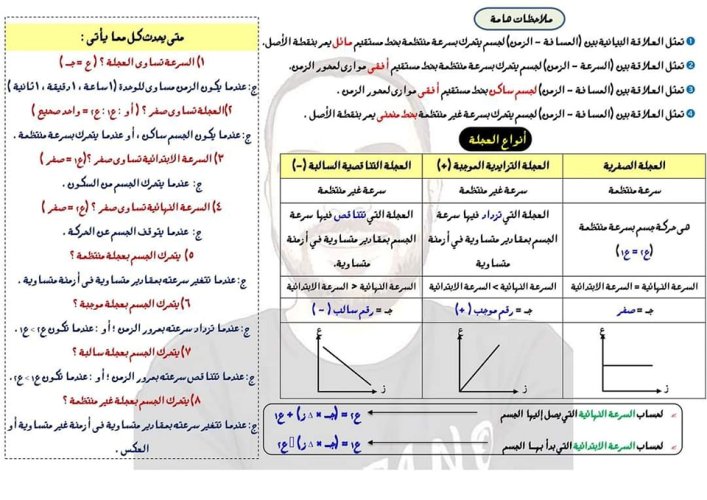 ملاحظات هامة
❶ تمثل العلاقة البيانية بين (المسافة – الزمن) لجسم يتحرك بسرعة منتظمة بخط مستقيم مائل يمر بنقطة الأصل.
❷ تمثل العلاقة بين (السرعة – الزمن) لجسم يتحرك بسرعة منتظمة بخط مستقيم أفقى موازى لمحور الزمن.
❸ تمثل العلاقة بين (المسافة – الزمن) لجسم ساكن بخط مستقيم أفقى موازى لمحور الزمن.
❹ تمثل العلاقة بين (المسافة – الزمن) لجسم يتحرك بسرعة غير منتظمة بخط منحنى يمر بنقطة الأصل.
أنواع العجلة
العجلة الصفرية
العجلة التزايدية الموجبة (+)
العجلة التناقصية السالبة (–)
سرعة منتظمة
سرعة غير منتظمة
سرعة غير منتظمة
هى حركة جسم بسرعة منتظمة
(ع٢ = ع١)
العجلة التي تزداد فيها سرعة
الجسم بمقادير متساوية في أزمنة
متساوية
العجلة التي تتناقص فيها سرعة
الجسم بمقادير متساوية في أزمنة
متساوية.
السرعة النهائية = السرعة الابتدائية
السرعة النهائية > السرعة الابتدائية
السرعة النهائية < السرعة الابتدائية
جـ = صفر
جـ = رقم موجب (+)
جـ = رقم سالب (–)
ع
ز
ع
ز
ع
ز
لحساب السرعة النهائية التي يصل إليها الجسم
ع٢ = (جـ × Δ ز) + ع١
لحساب السرعة الابتدائية التي بدأ بها الجسم
ع١ = (جـ × Δ ز) ع٢
متى يحدث كل مما يأتى :
١) السرعة تساوى العجلة ؟ (ع = جـ)
ج: عندما يكون الزمن مساوى للوحدة (١ ساعة ، ١ دقيقة ، ١ ثانية)
٢) العجلة تساوى صفر ؟ (أو : ع١ : ع٢ = واحد صحيح)
ج: عندما يكون الجسم ساكن ، أو عندما يتحرك بسرعة منتظمة .
٣) السرعة الابتدائية تساوى صفر ؟ (ع١ = صفر)
ج: عندما يتحرك الجسم من السكون .
٤) السرعة النهائية تساوى صفر ؟ (ع٢ = صفر)
ج: عندما يتوقف الجسم عن الحركة .
٥) يتحرك الجسم بعجلة منتظمة ؟
ج: عندما تتغير سرعته بمقادير متساوية في أزمنة متساوية .
٦) يتحرك الجسم بعجلة موجبة ؟
ج: عندما تزداد سرعته بمرور الزمن ؛ أو : عندما تكون ع٢ > ع١ .
٧) يتحرك الجسم بعجلة سالبة ؟
ج: عندما تتناقص سرعته بمرور الزمن ؛ أو : عندما تكون ع١ > ع٢ .
٨) يتحرك الجسم بعجلة غير منتظمة ؟
ج: عندما تتغير سرعته بمقادير متساوية في أزمنة غير متساوية أو
العكس .